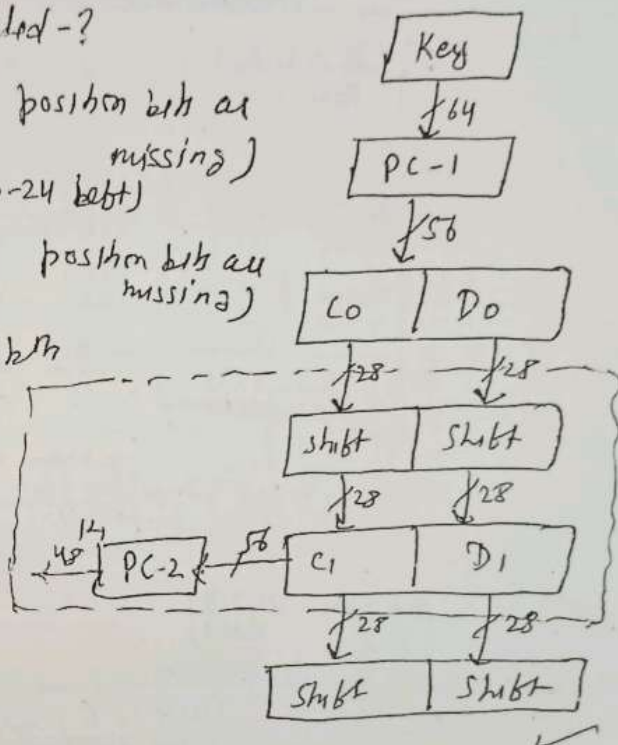 position bits are
missing)
-24 left)
position bits are
missing)
Key
64
PC-1
56
C0 D0
28 28
shift shift
28 28
48 PC-2 56 C1 D1
28 28
shift shift